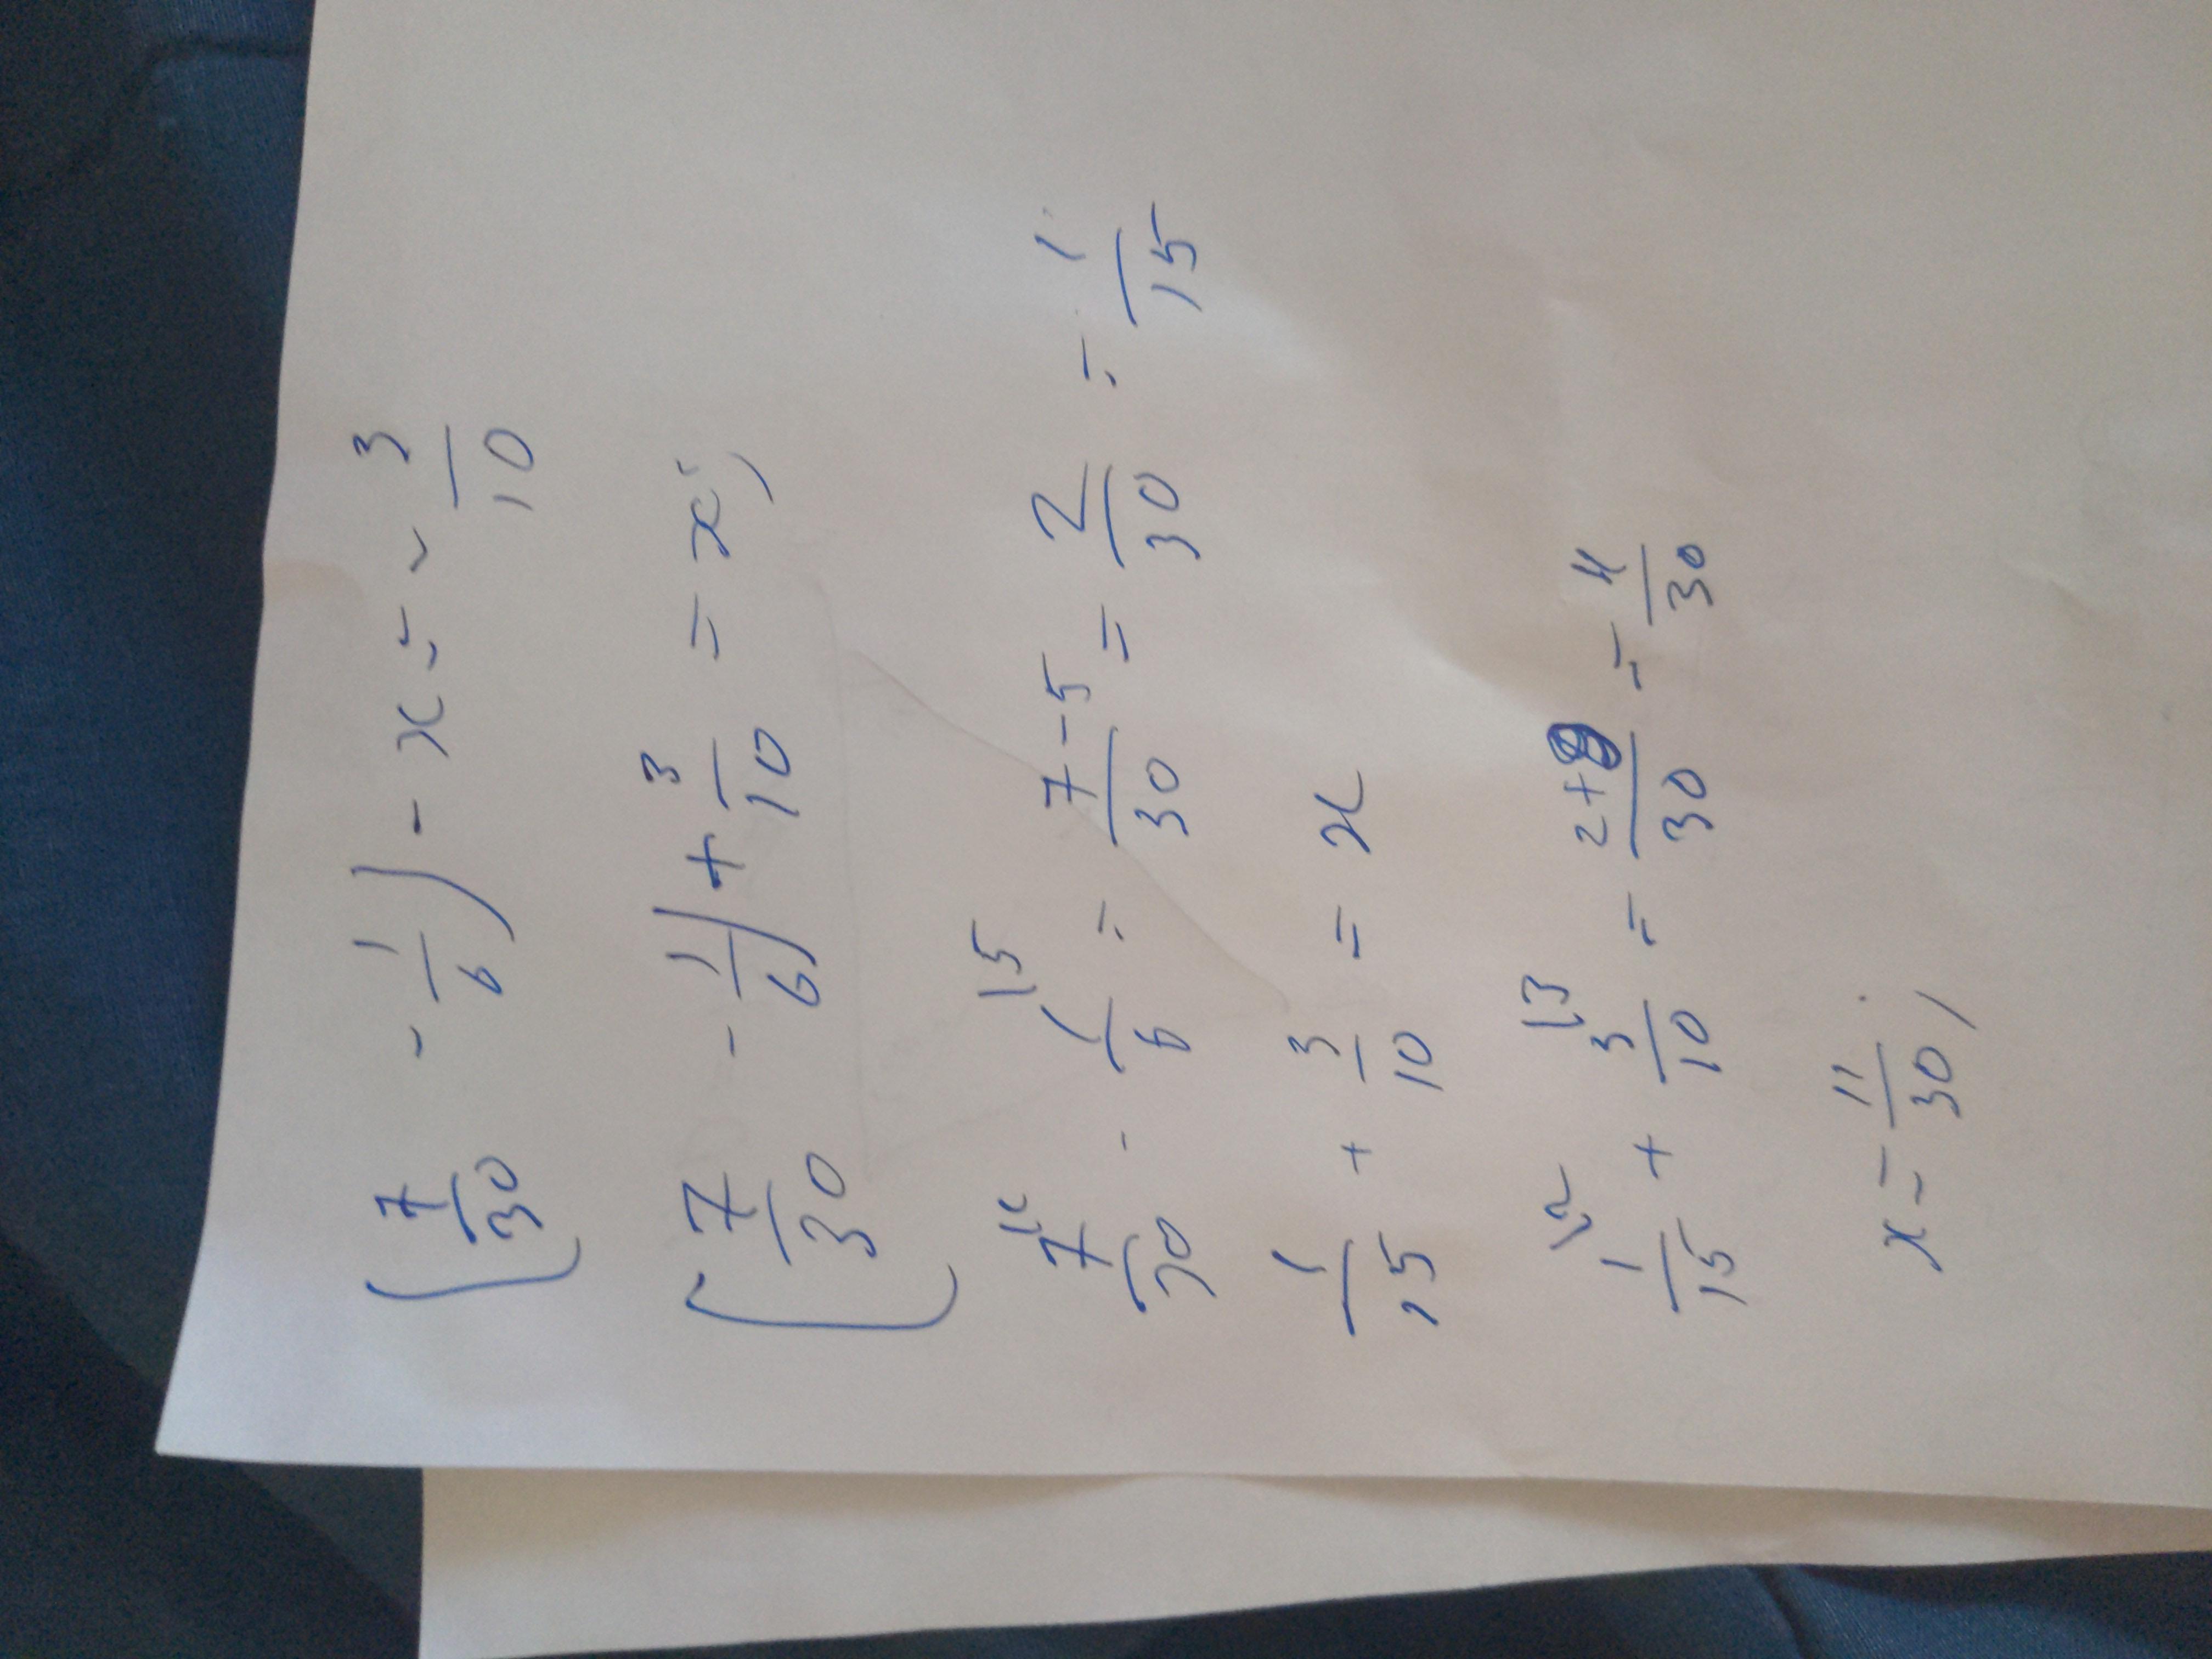 (7/30 - 1/6) - x = - 3/10
(7/30 - 1/6) + 3/10 = x;
7/30 - 1/6 = 7-5/30 = 2/30 = 1/15
1/15 + 3/10 = x
1/15 + 3/10 = 2+9/30 = 11/30
x = 11/30;